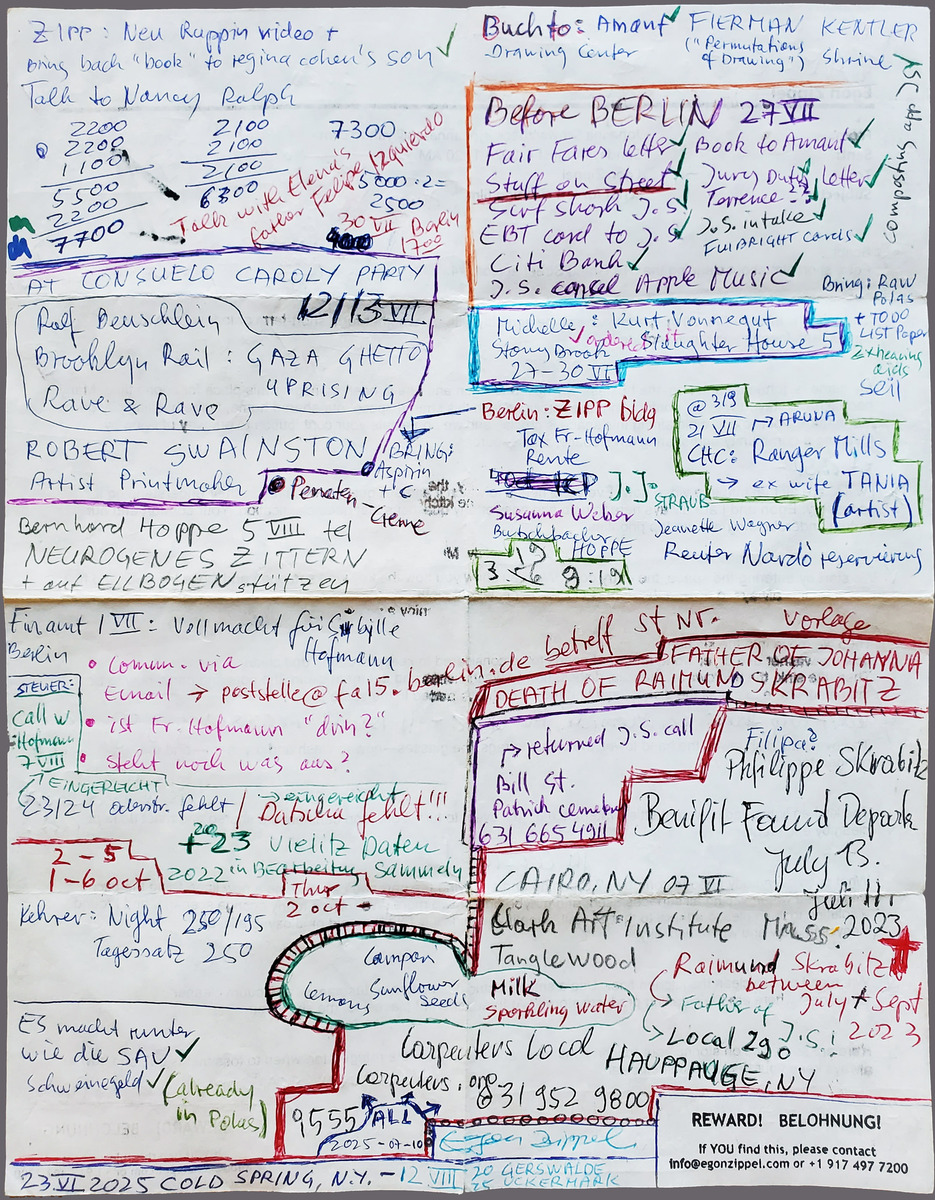 ZIPP: Neu Ruppin video +
Bring back "book" to regina cohen's son ✓
Talk to Nancy Ralph
2200
2200
1100
5500
2200
7700
2100
2100
2100
6300
7300
5000 :2=
2500
Talk with Elena's
father Felipe Izquierdo
30 VII Berlin
1700
AT CONSUELO CAROLY PARTY
12/13 VII
Rolf Beuschlein
Brooklyn Rail: GAZA GHETTO
UPRISING
Rave & Rave
ROBERT SWAINSTON
Artist Printmaker
BRING:
Aspirin
+ C
Penaten
-Creme
Bernhard Hoppe 5 VIII tel
NEUROGENES ZITTERN
+ auf ELLBOGEN stützen
Buch to: Amant ✓ FIERMAN KENTLER
Drawing Center ("Permutations
of Drawing") Shrine
composting app J.S ✓
Before BERLIN 27 VII
Fair Fares letter ✓ Book to Amant ✓
Stuff on Street ✓ Jury Duty Letter ✓
Surf Shark J.S. ✓ Terrence
EBT card to J.S ✓ J.S. intake ✓
FULBRIGHT Cards ✓
Citi Bank ✓
J.S. cancel Apple Music ✓
Bring: Raw
Polas
+ TODO
LIST Paper
2x hearing
aids
Seil
Michelle: Kurt Vonnegut
✓ ordered it
Stony Brook Slaughter House 5
27-30 VII
Berlin: ZIPP bldg
Tax Fr-Hofmann
Rente
J.J.
STRAUB
Susanna Weber
Butschbacher
HOPPE
Jeanette Wagner
Reuter Nardò reservierung
9:19
@ 319
21 VII → ARUNA
CHC: Ranger Mills
→ ex wife TANIA
(artist)
Finamt 1 VII: Vollmacht für Sibylle
Berlin Hofmann
betreff St Nr. Vorlage
• comun. via
Email → poststelle@fa15.berlin.de
• ist Fr. Hofmann "drin?"
• steht noch was aus?
STEUER:
Call w
Hofmann
7 VIII
EINGEREICHT
→ eingereicht
23/24 oderstr. fehlt / Dabina fehlt!!!
+ 2023 Vielitz Daten
2022 in BEarbeitung sammeln
2-5
1-6 oct
Thur
2 oct
FATHER OF JOHANNA
DEATH OF RAIMUND SKRABITZ
→ returned J.S. call
Bill St.
Patrick cemetery
631 665 4911
Filipa?
Philippe Skrabitz
Benifit Found Depart
July 13.
Juli 11.
CAIRO, NY 07 VI
Clark Art Institute Mass. 2023
Tanglewood
Raimund Skrabitz
between
July + Sept
2023
Father of J.S.!
→ Local 290
HAUPPAUGE, NY
Kehrer: Night 250/195
Tagessatz 250
Campari
Lemons Sunflower
Seeds
Milk
Sparkling water
Es macht runter
wie die SAU ✓
Schweinegeld ✓ (already
in Polas)
Carpenters Local
Carpenters.org
631 952 9800
9555
ALL
2025-07-10
Egon Zippel
REWARD! BELOHNUNG!
If YOU find this, please contact
info@egonzippel.com or +1 917 497 7200
23 VI 2025 COLD SPRING, N.Y. - 12 VIII 2025 GERSWALDE
UCKERMARK